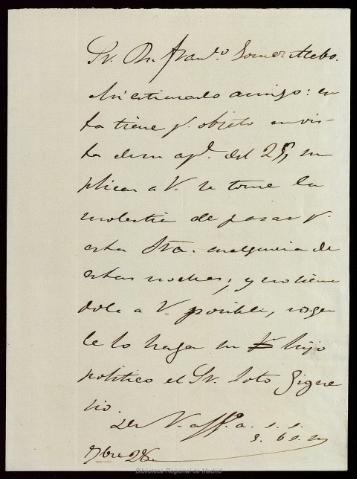 Sr. Dn. Franco. Gomez Acebo.
Mi estimado amigo: es
ta tiene pr. objeto en vis
ta de su apl. del 25, su
plicar a V. se tome la
molestia de pasar pr.
esta Sria. cualquiera de
estas noches; y no sien
dole a V. posible, ruega
le lo haga su hijo
politico el Sr. Soto
De V. affo. a. s. s.
q. b. s. m.
9bre 28
Biblioteca Regional de Madrid